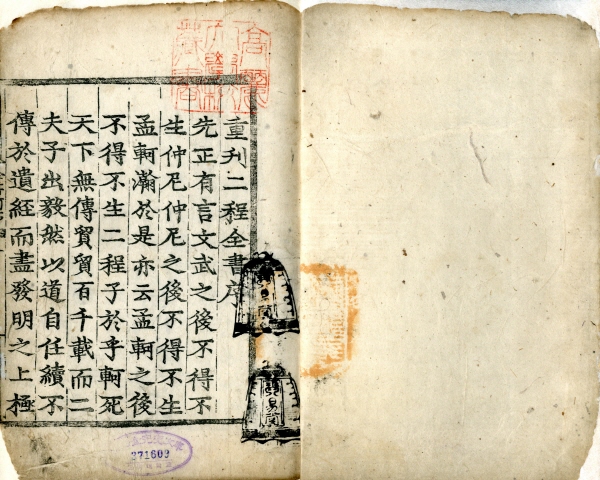 重刊二程全書序
先正有言文武之後不得不
生仲尼仲尼之後不得不生
孟軻瀚於是亦云孟軻之後
不得不生二程子於乎軻死
天下無傳貿貿百千載而二
夫子出毅然以道自任續不
傳於遺經而盡發明之上極
371609